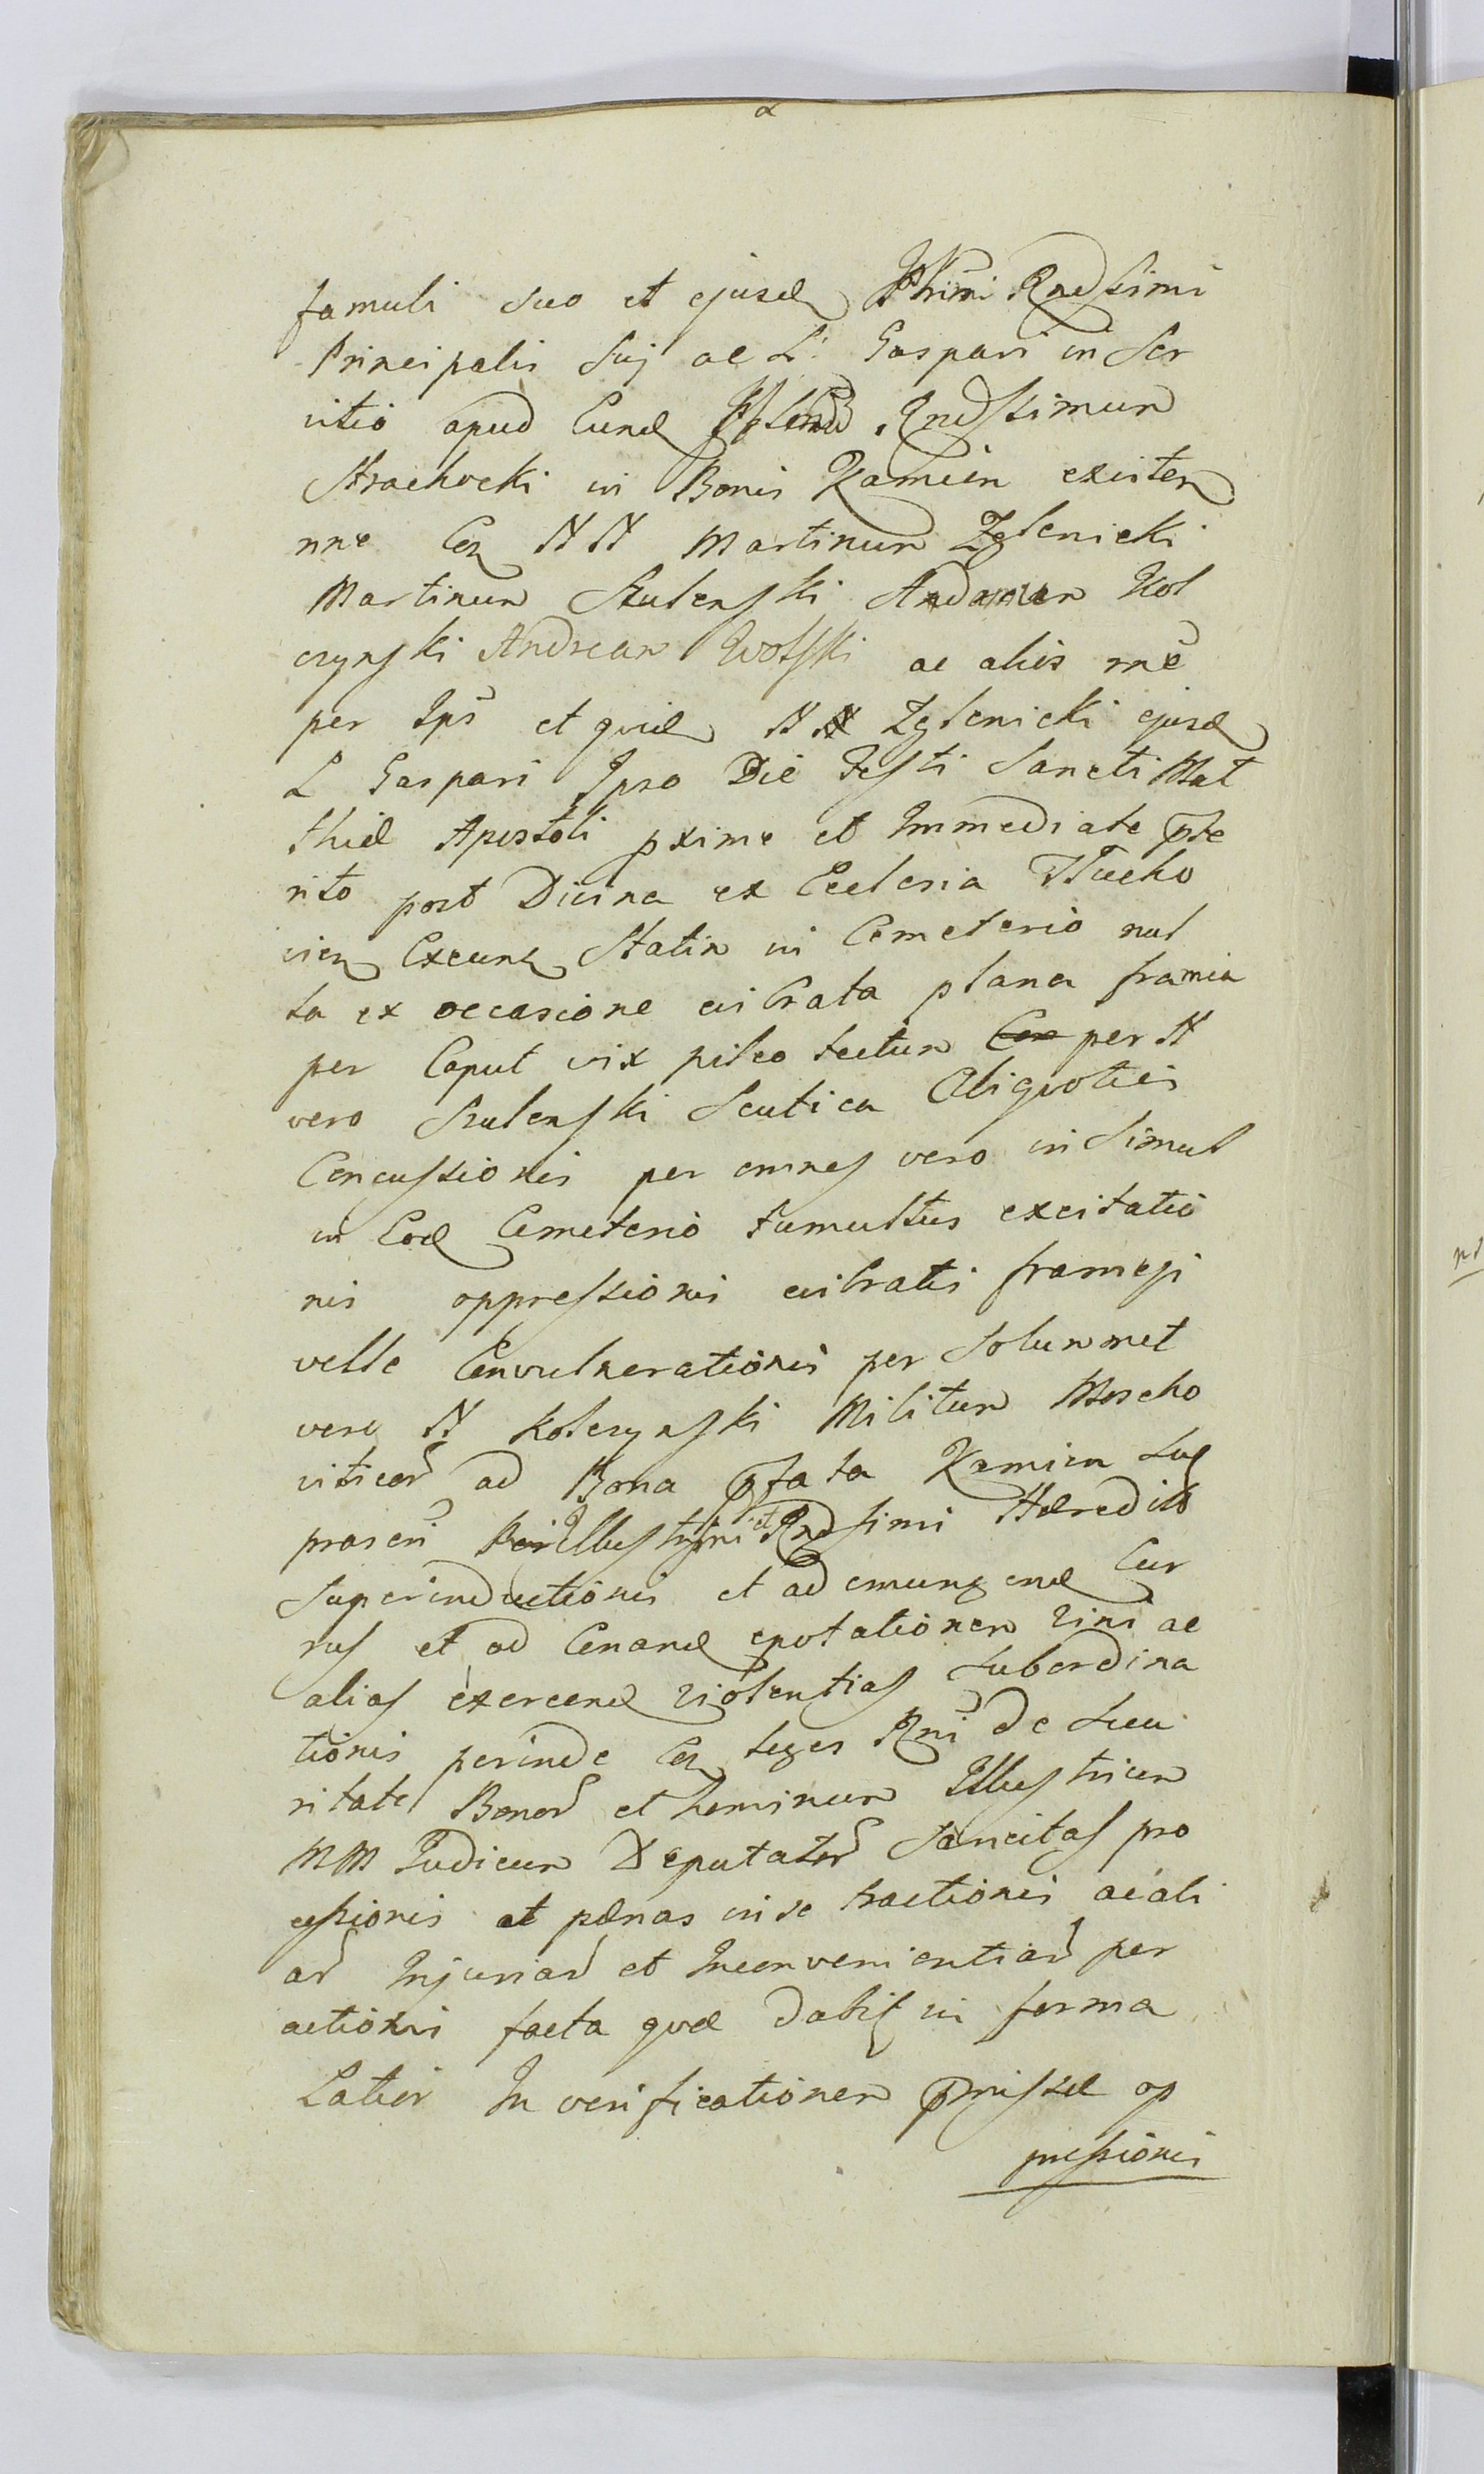 famuli suo et ejusd Rndssimi
Principalis Suj ac L. Gaspari in Ser
vitio apud Eund Rndssimum
Strachocki in Bonis Kamien existen
nne Con NN Martinum Zglenicki
Martinum Szulenski Adamum Kol
czynski Andream Wolski ac aliis
per Ips et quid N Zglenicki ejusd
L Gaspari Ipso Die Festi Sancti Mat
thiæ Apostoli pxime et Immediate præte
rito post Divina ex Ecclesia Tlucho
vien Exeunt Statim in Cemeterio nul
la ex occasione evibrata plana framea
per Caput vix pileo tectum per N
vero Szulenski Scutica Aliquoties
Concussionis per omnes vero in Simul
in Eod Cemeterio tumultus excitatio
nis oppressionis evibratis frameis
velle Convulnerationis per Solummet
vero N Kolczynski Militum Moscho
viticor ad Bona præfata Kamien sup
prascri Illustrissimi et Rndssimi Hæredis
Superinductionis et ad emungend Cur
rus et ad Cenand epotationem Vini ac
alias exercend violentias Subordina
tionis perinde Con leges Rni de Secu
ritate Bonor et hominum Illustrium
MM Judicum Deputator Sancitas pro
cessionis et pænas in se tractionis ac ali
ar Injuriar et Inconvenientiar per
actionis facta quæ dabit in forma
Latior In verificationem præmissæ op
pressionis